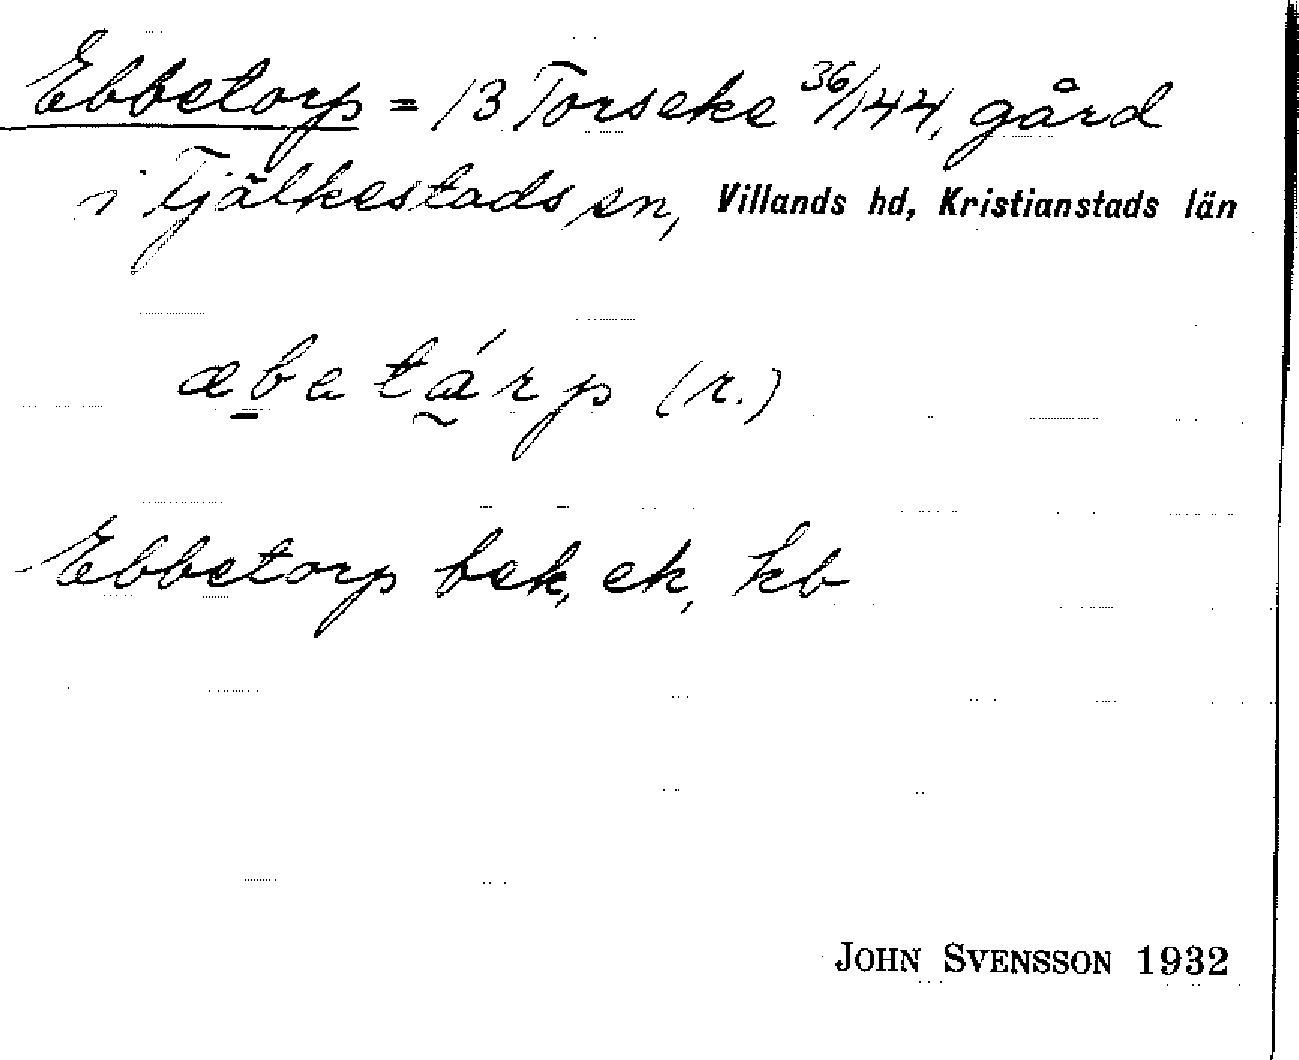 Ebbetorp = 13 Torseke 36/144, gård
i Tjälkestads sn, Villands hd, Kristianstads län
æbetárp (r.)
Ebbetorp bek, ek, kb
JOHN SVENSSON 1932